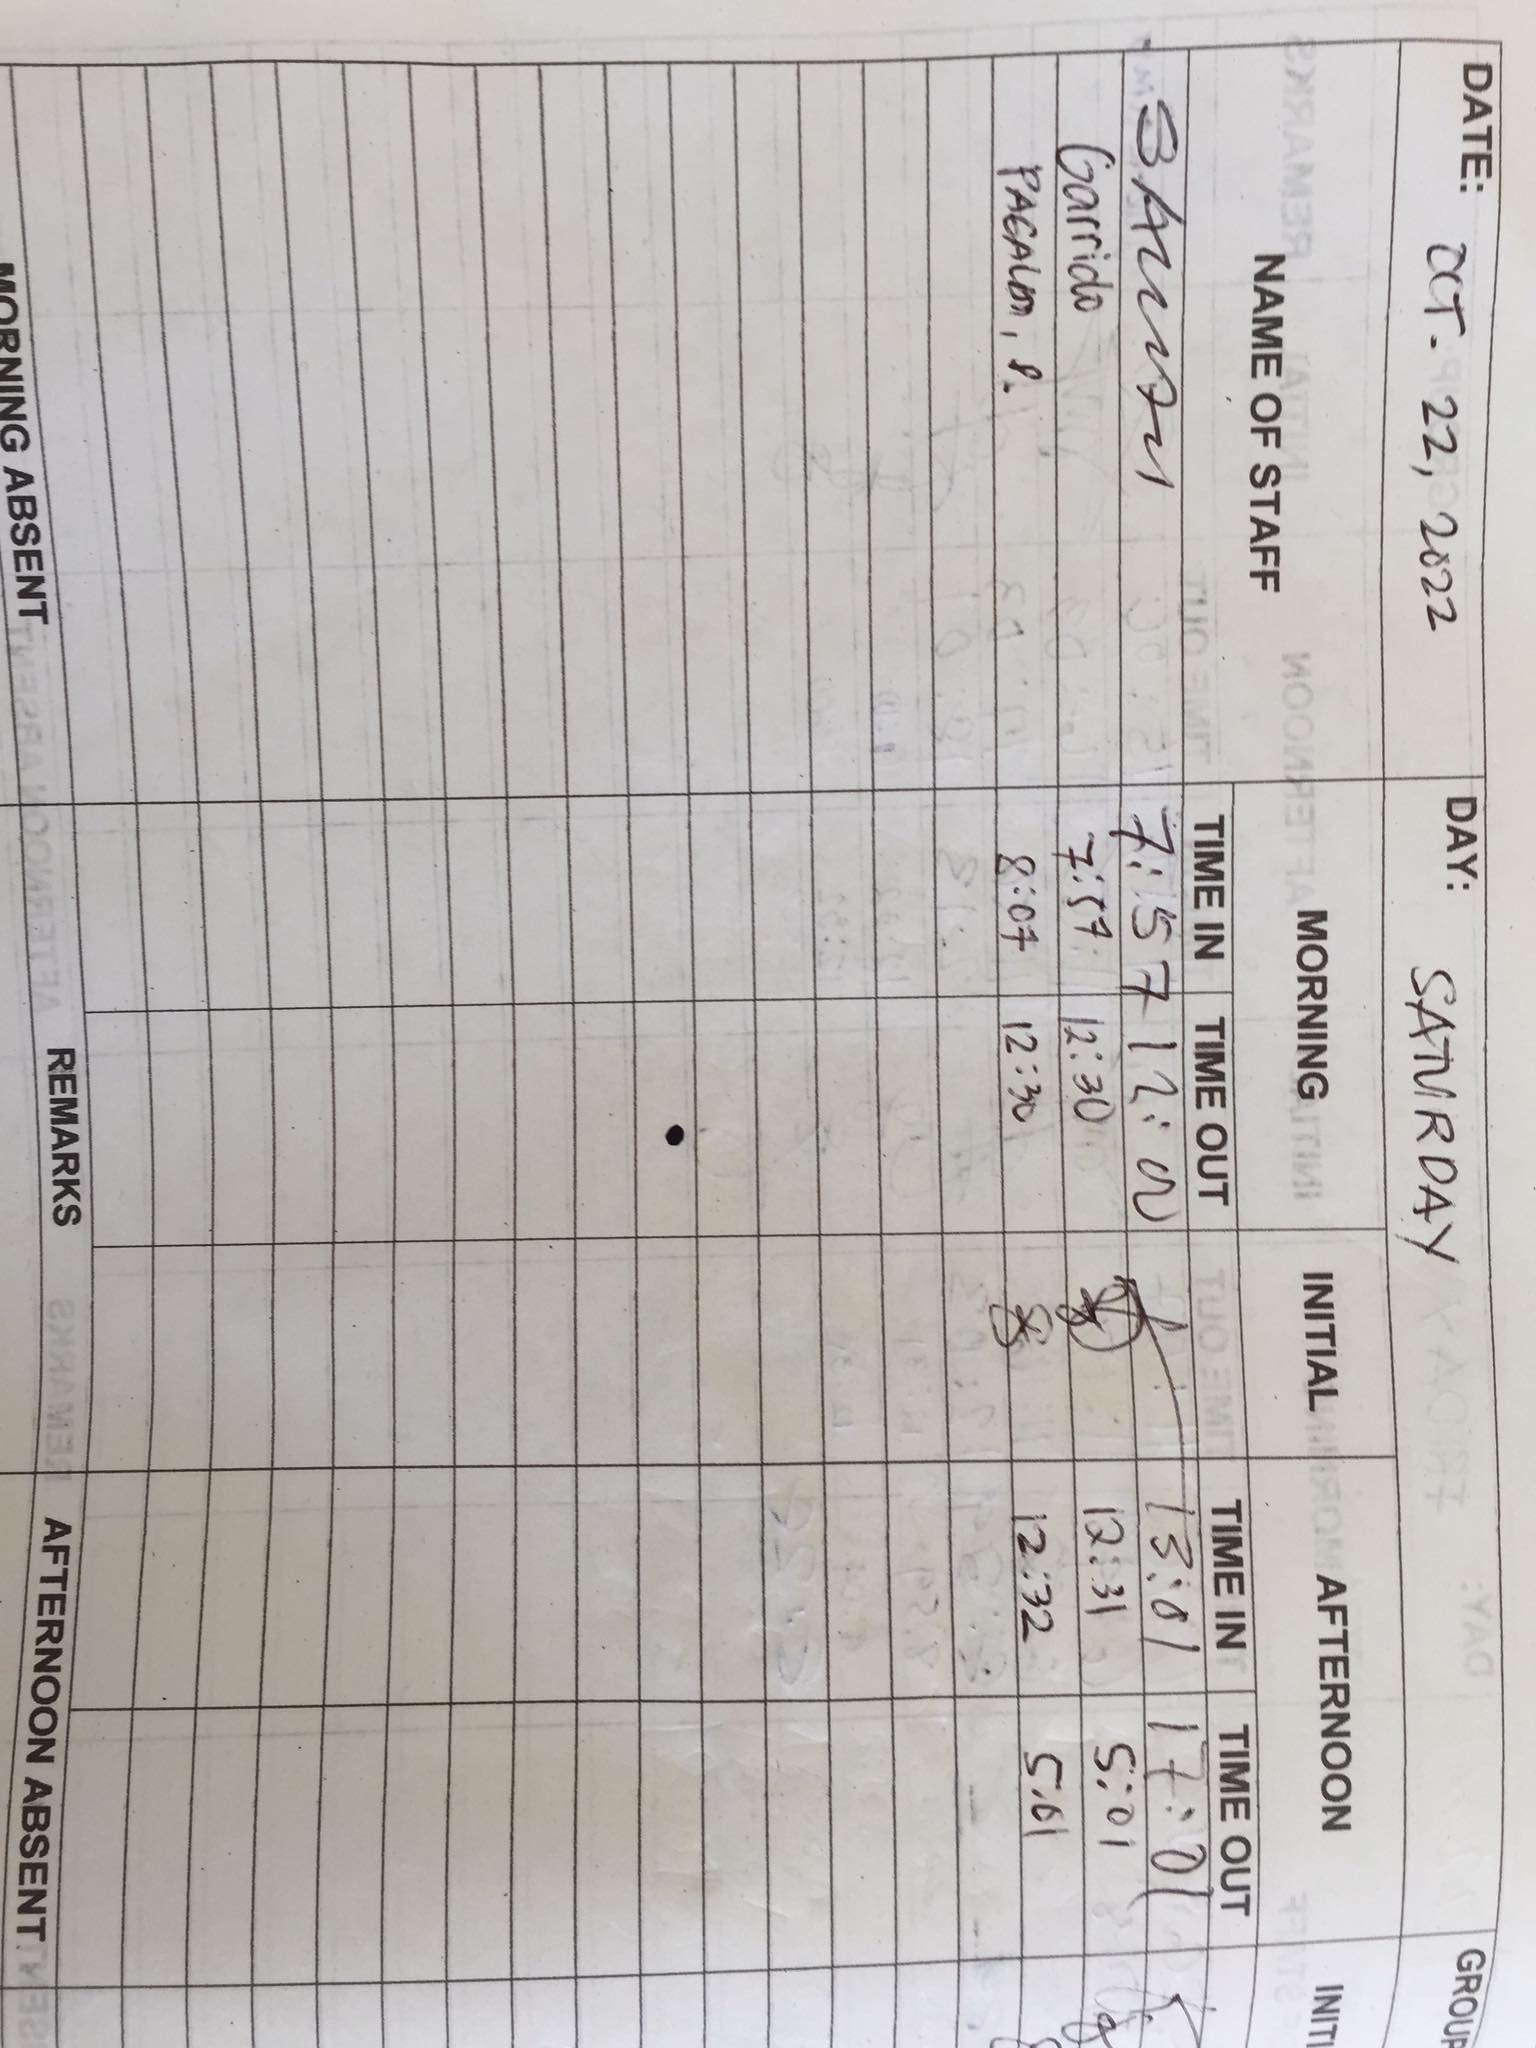 DATE: OCT. 22, 2022 DAY: SATURDAY GROUP
NAME OF STAFF MORNING INITIAL AFTERNOON INITI
TIME IN TIME OUT TIME IN TIME OUT
7:57 12:00 13:01 17:01
Garrido 7:57 12:30 12:31 5:01
8:07 12:30 12:32 5:01
MORNING ABSENT REMARKS AFTERNOON ABSENT